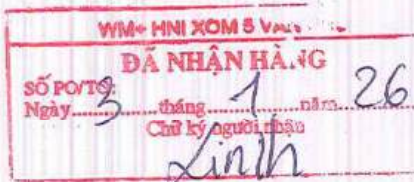 WM+ HNI XOM 5
ĐÃ NHẬN HÀNG
SỐ PO/TO:
Ngày 3 tháng 1 năm 26
Chữ ký người nhận
Linh